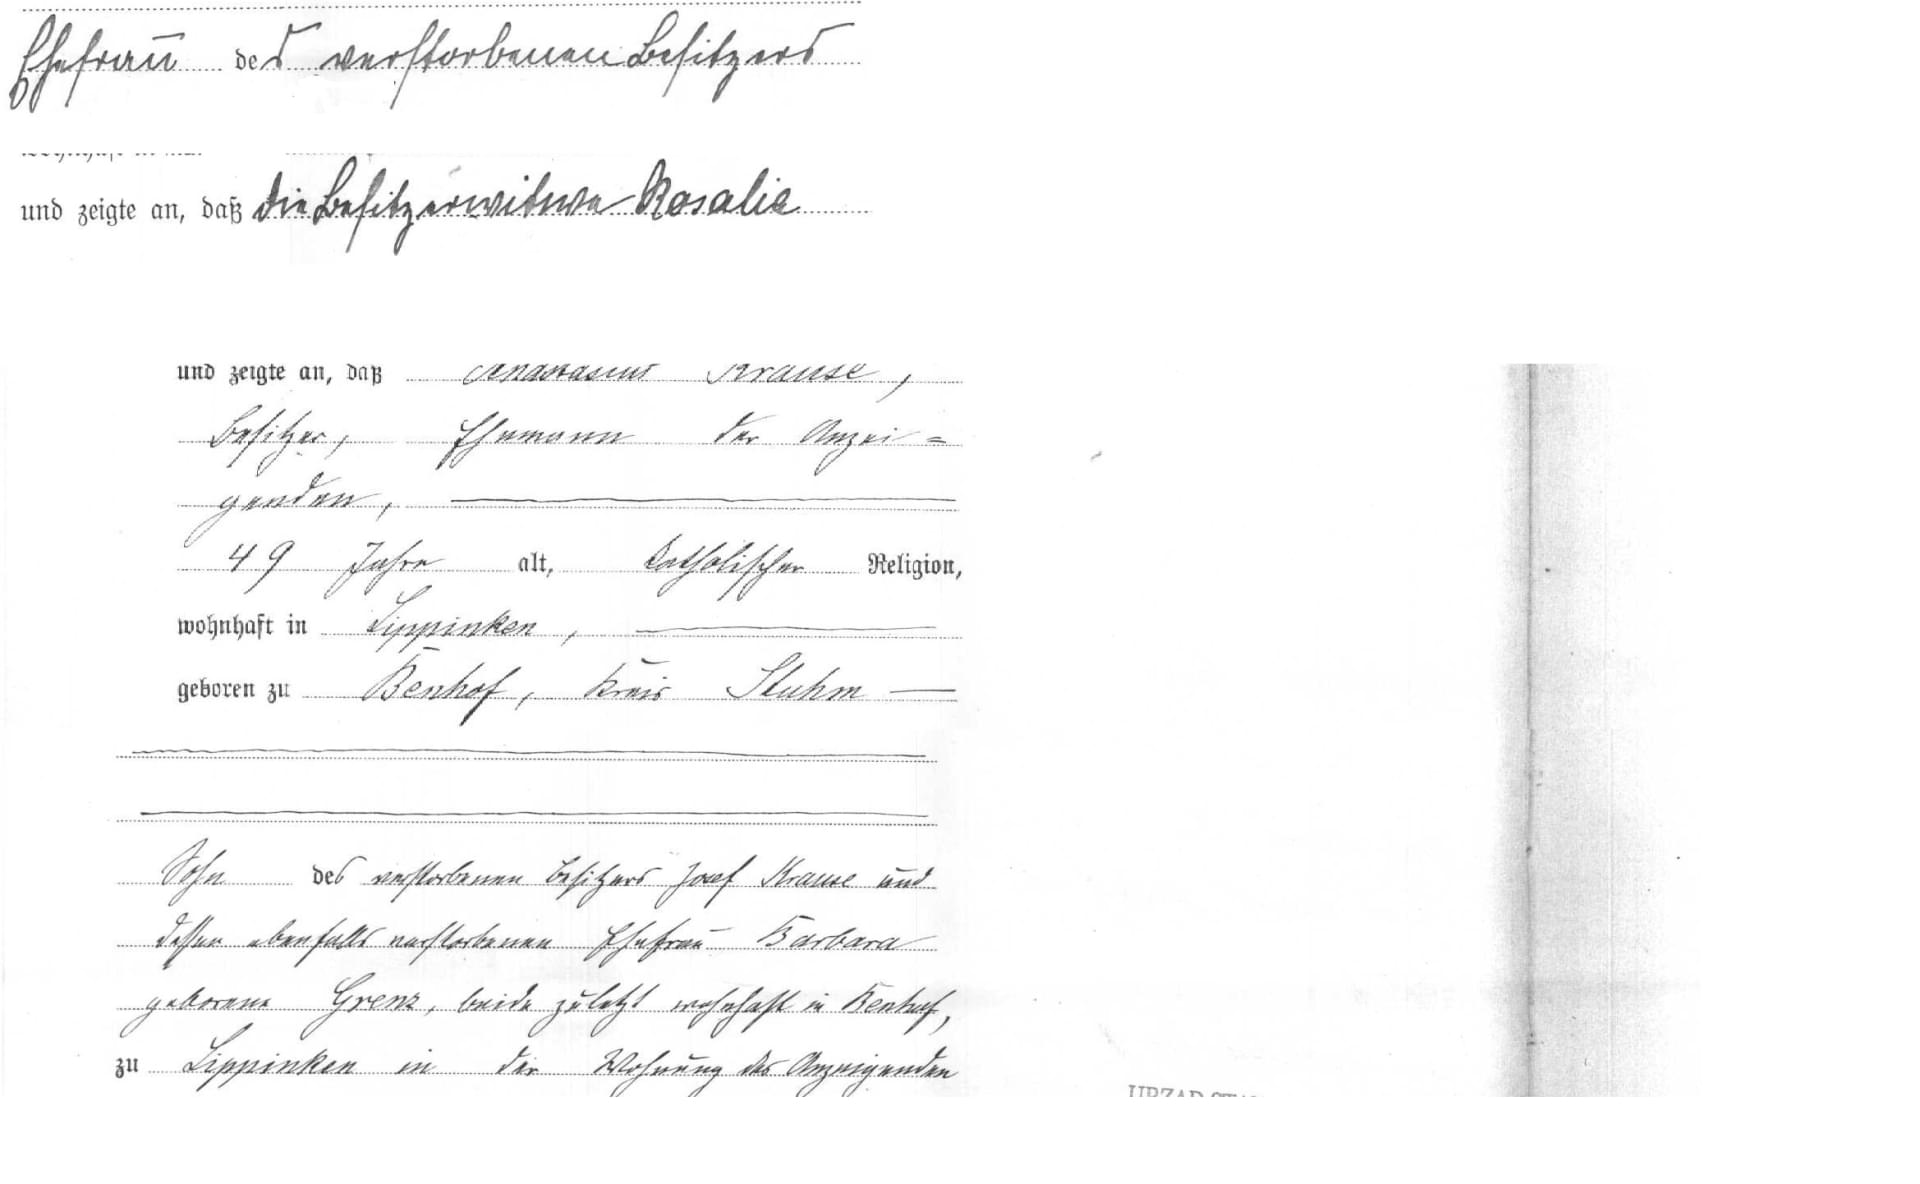 Ehefrau des verstorbenen Besitzers
und zeigte an, daß die Besitzerwitwe Rosalie
und zeigte an, daß Anastasius Krause,
Besitzer, Ehemann der Anzei=
genden,
49 Jahre alt, katholischer Religion,
wohnhaft in Lippinken,
geboren zu Benhof, Kreis Stuhm
Sohn des verstorbenen Besitzers Josef Krause und
dessen ebenfalls verstorbenen Ehefrau Barbara
geborene Grenz, beide zuletzt wohnhaft in Benhof,
zu Lippinken in der Wohnung des Anzeigenden